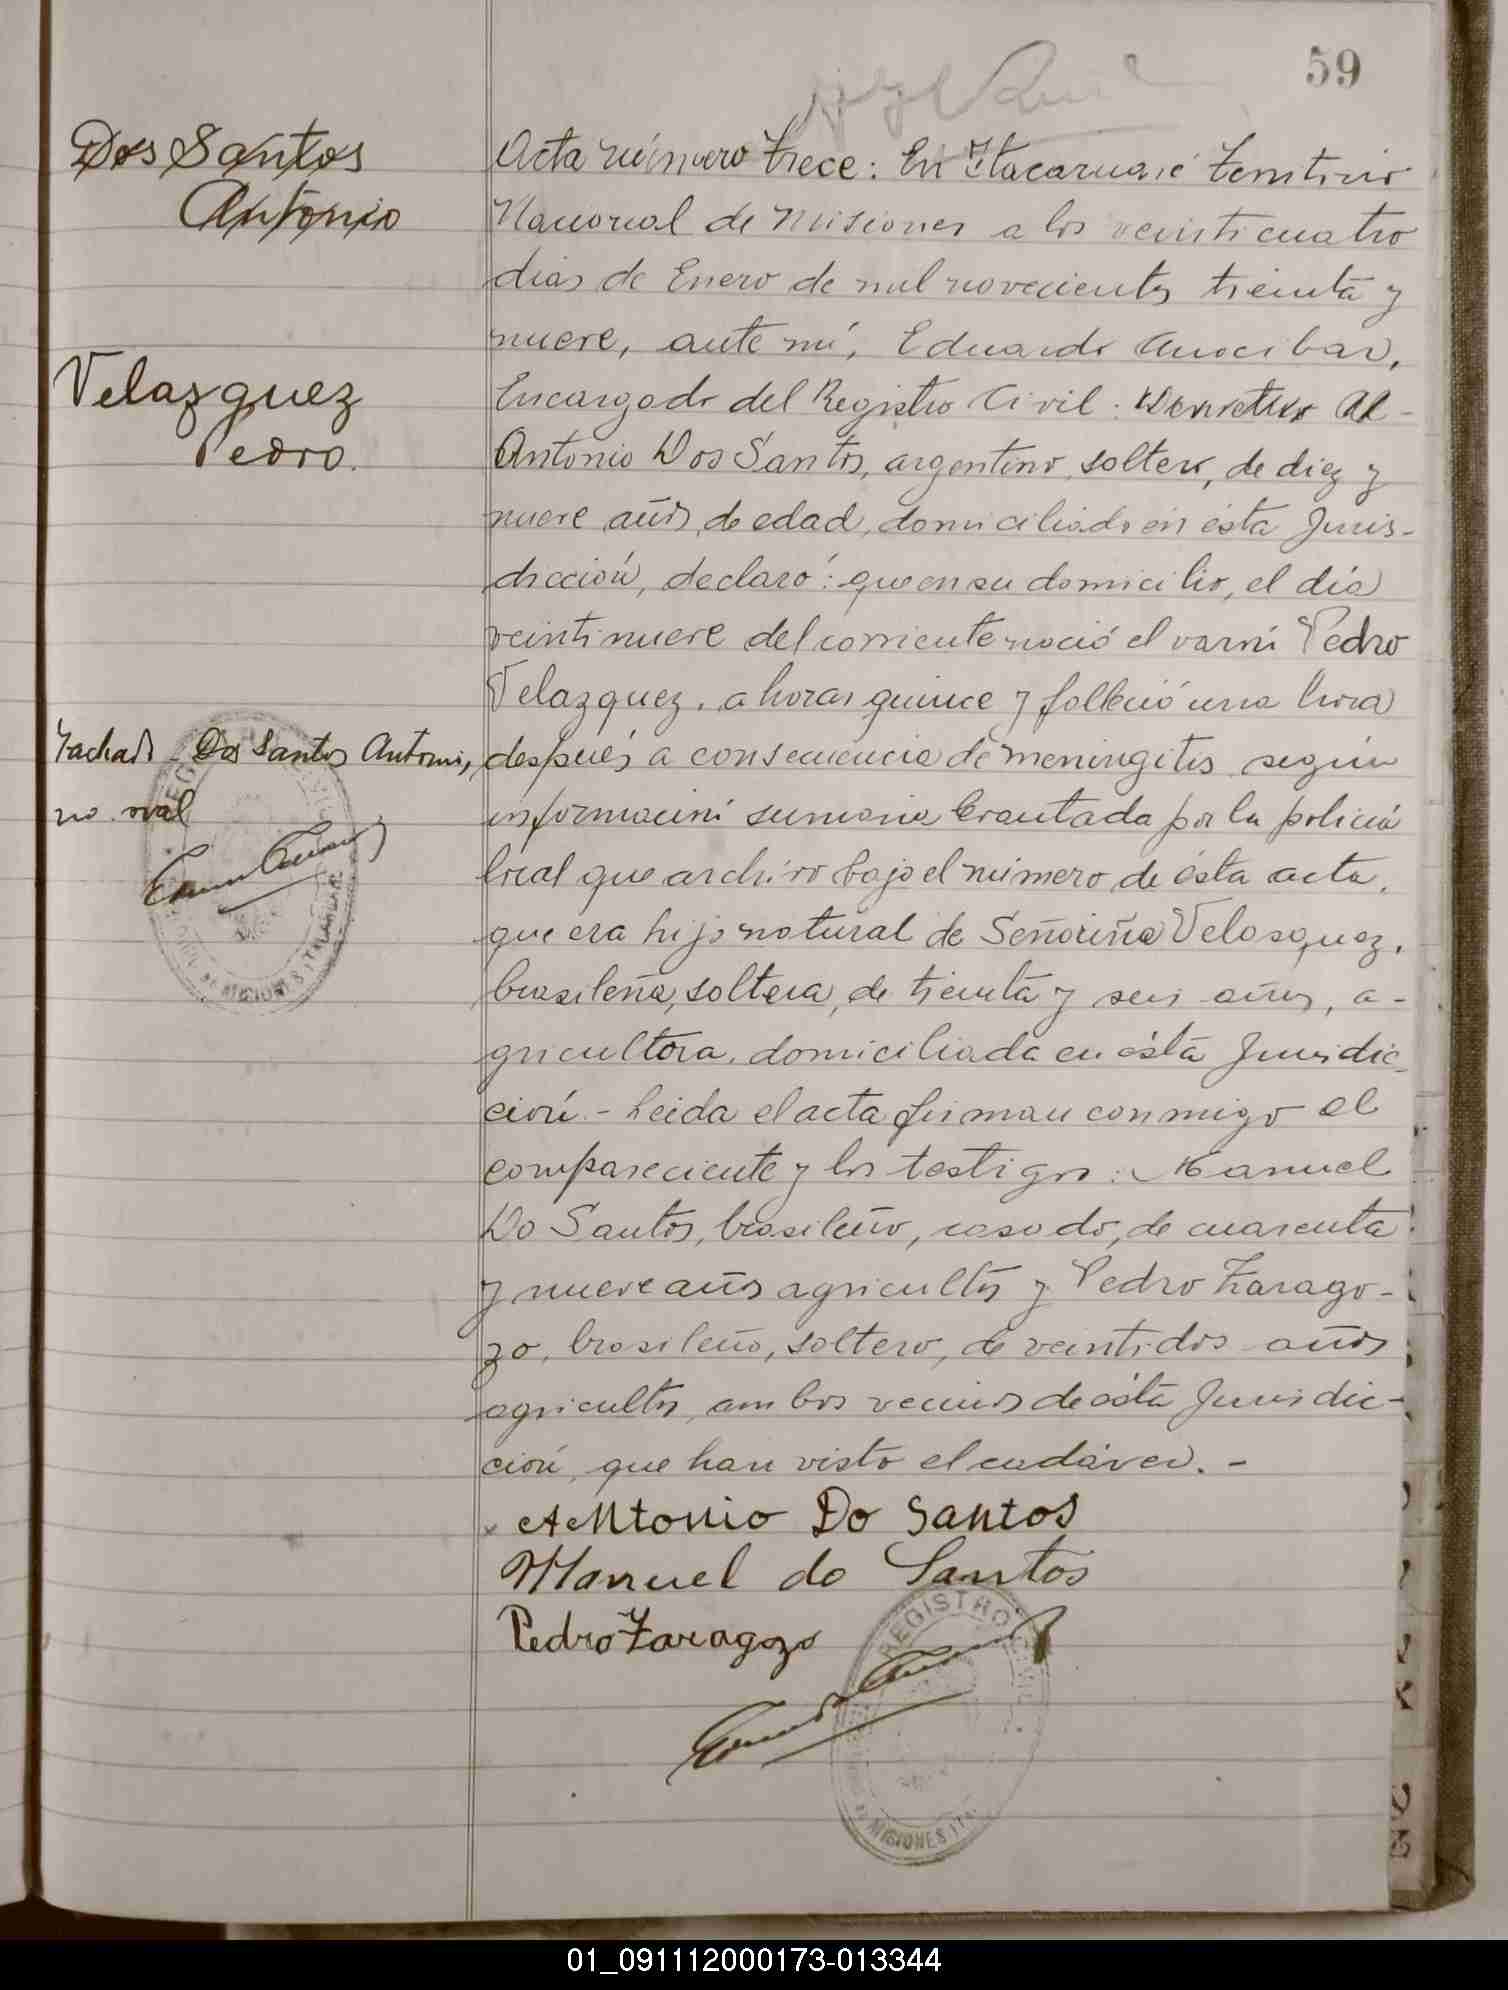 59
Dos Santos
Antonio
Velazquez
Pedro.
Tachado Dos Santos Antonio,
no vale
Acta número trece: En Itacaruaré Territorio
Nacional de Misiones a los veinticuatro
dias de Enero de mil novecientos treinta y
nueve, ante mí, Eduardo Anocibar,
Encargado del Registro Civil: Al
Antonio Dos Santos, argentino, soltero, de diez y
nueve años de edad, domiciliado en ésta Juris-
dicción, declaró: que en su domicilio, el día
veintinueve del corriente nació el varón Pedro
Velazquez, a horas quince y falleció una hora
después a consecuencia de meningitis según
información sumaria levantada por la policía
local que archivo bajo el número de ésta acta,
que era hijo natural de Señoriña Velasquez,
brasileña, soltera, de treinta y seis años, a-
gricultora, domiciliada en ésta Jurisdic-
ción.- Leida el acta firman conmigo el
compareciente y los testigos: Manuel
Do Santos, brasileño, casado, de cuarenta
y nueve años agricultor y Pedro Zarago-
zo, brasileño, soltero, de veintidos años
agricultor, ambos vecinos de ésta Jurisdic-
ción, que han visto el cadáver.-
Antonio Do Santos
Manuel do Santos
Pedro Zaragozo
REGISTRO CIVIL
MISIONES
01_091112000173-013344